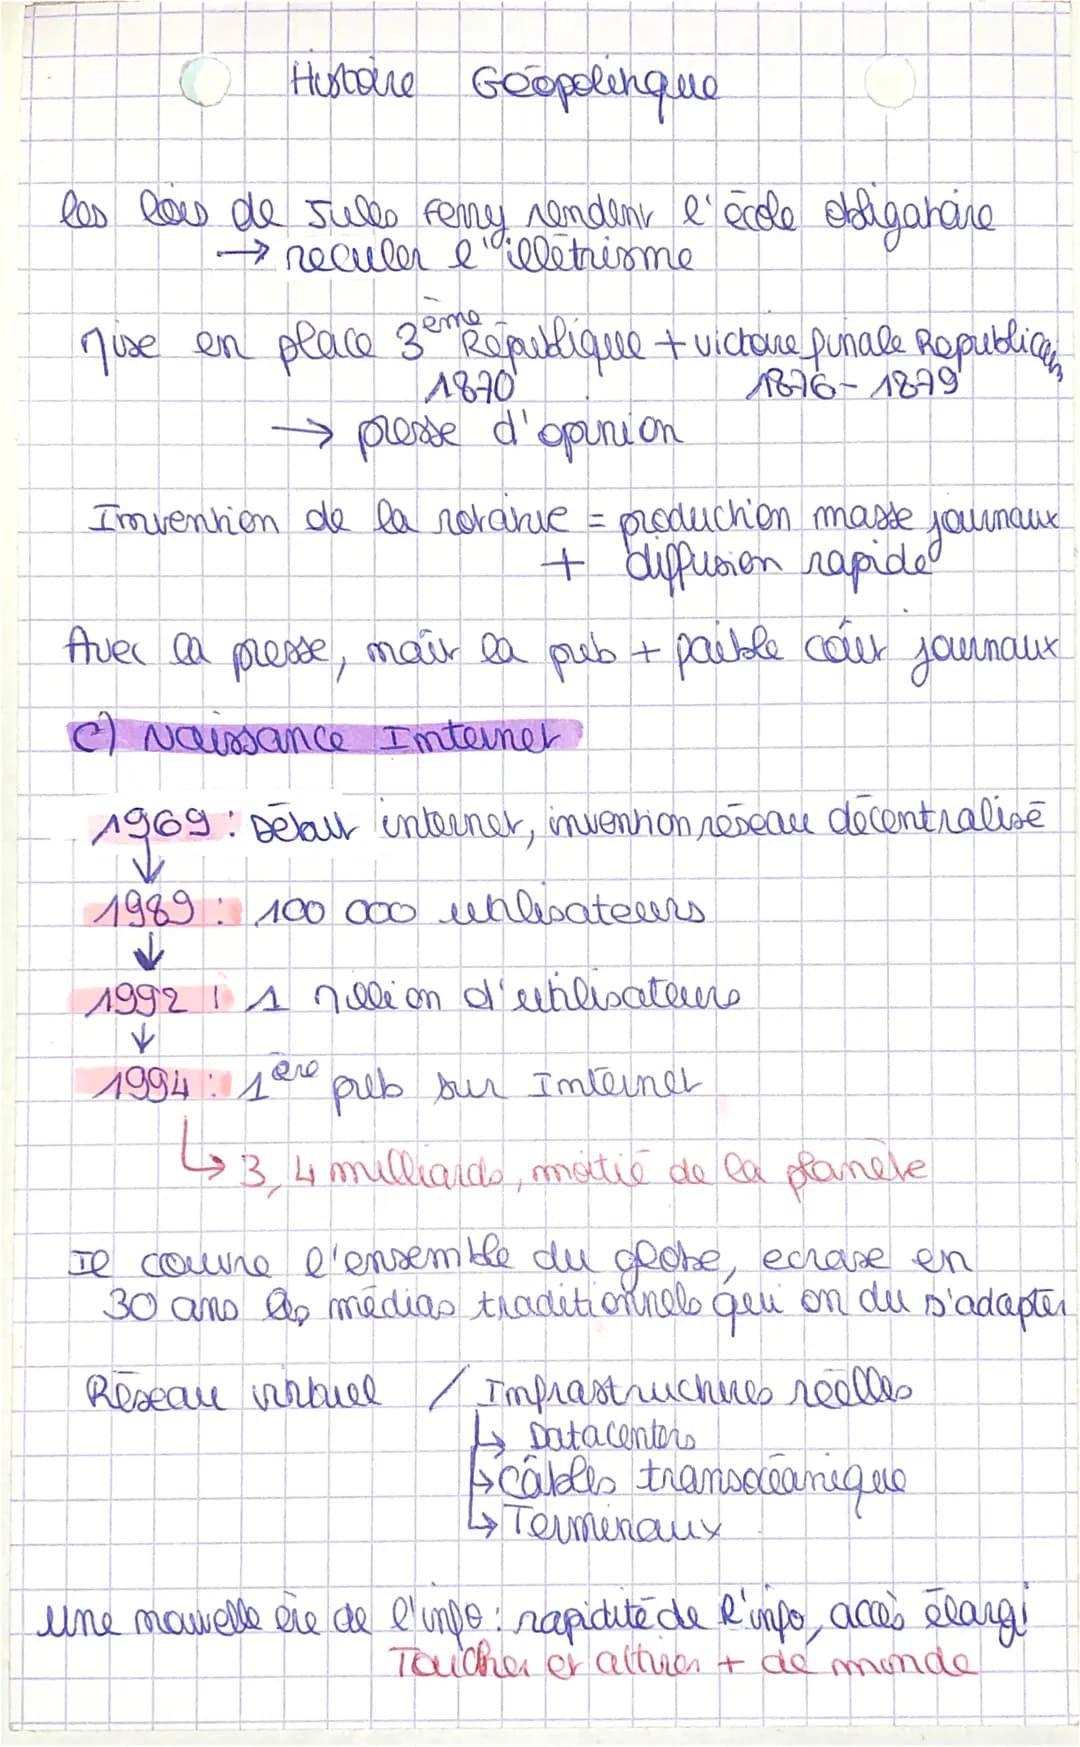 Histoire Géopolitique
les lois de Jules Ferry rendent l'école obligatoire
→ reculer l'illétrisme
Mise en place 3ème République + victoire finale Republicains
1870 1876-1879
→ presse d'opinion
Invention de la rotative = production masse journaux
+ diffusion rapide
Avec la presse, naît la pub + faible coût journaux
c) Naissance Internet
1969 : Début internet, invention réseau décentralisé
↓
1989 : 100 000 utilisateurs
↓
1992 : 1 million d'utilisateurs
↓
1994 : 1ère pub sur Internet
↳ 3,4 milliards, moitié de la planète
Il couvre l'ensemble du globe, ecrase en
30 ans les médias traditionnels qui on du s'adapter
Réseau virtuel / Infrastructures réelles
↳ Datacenters
↳ Câbles transocéanique
↳ Terminaux
une nouvelle ère de l'info : rapidité de l'info, accès élargi
Toucher et attirer + de monde